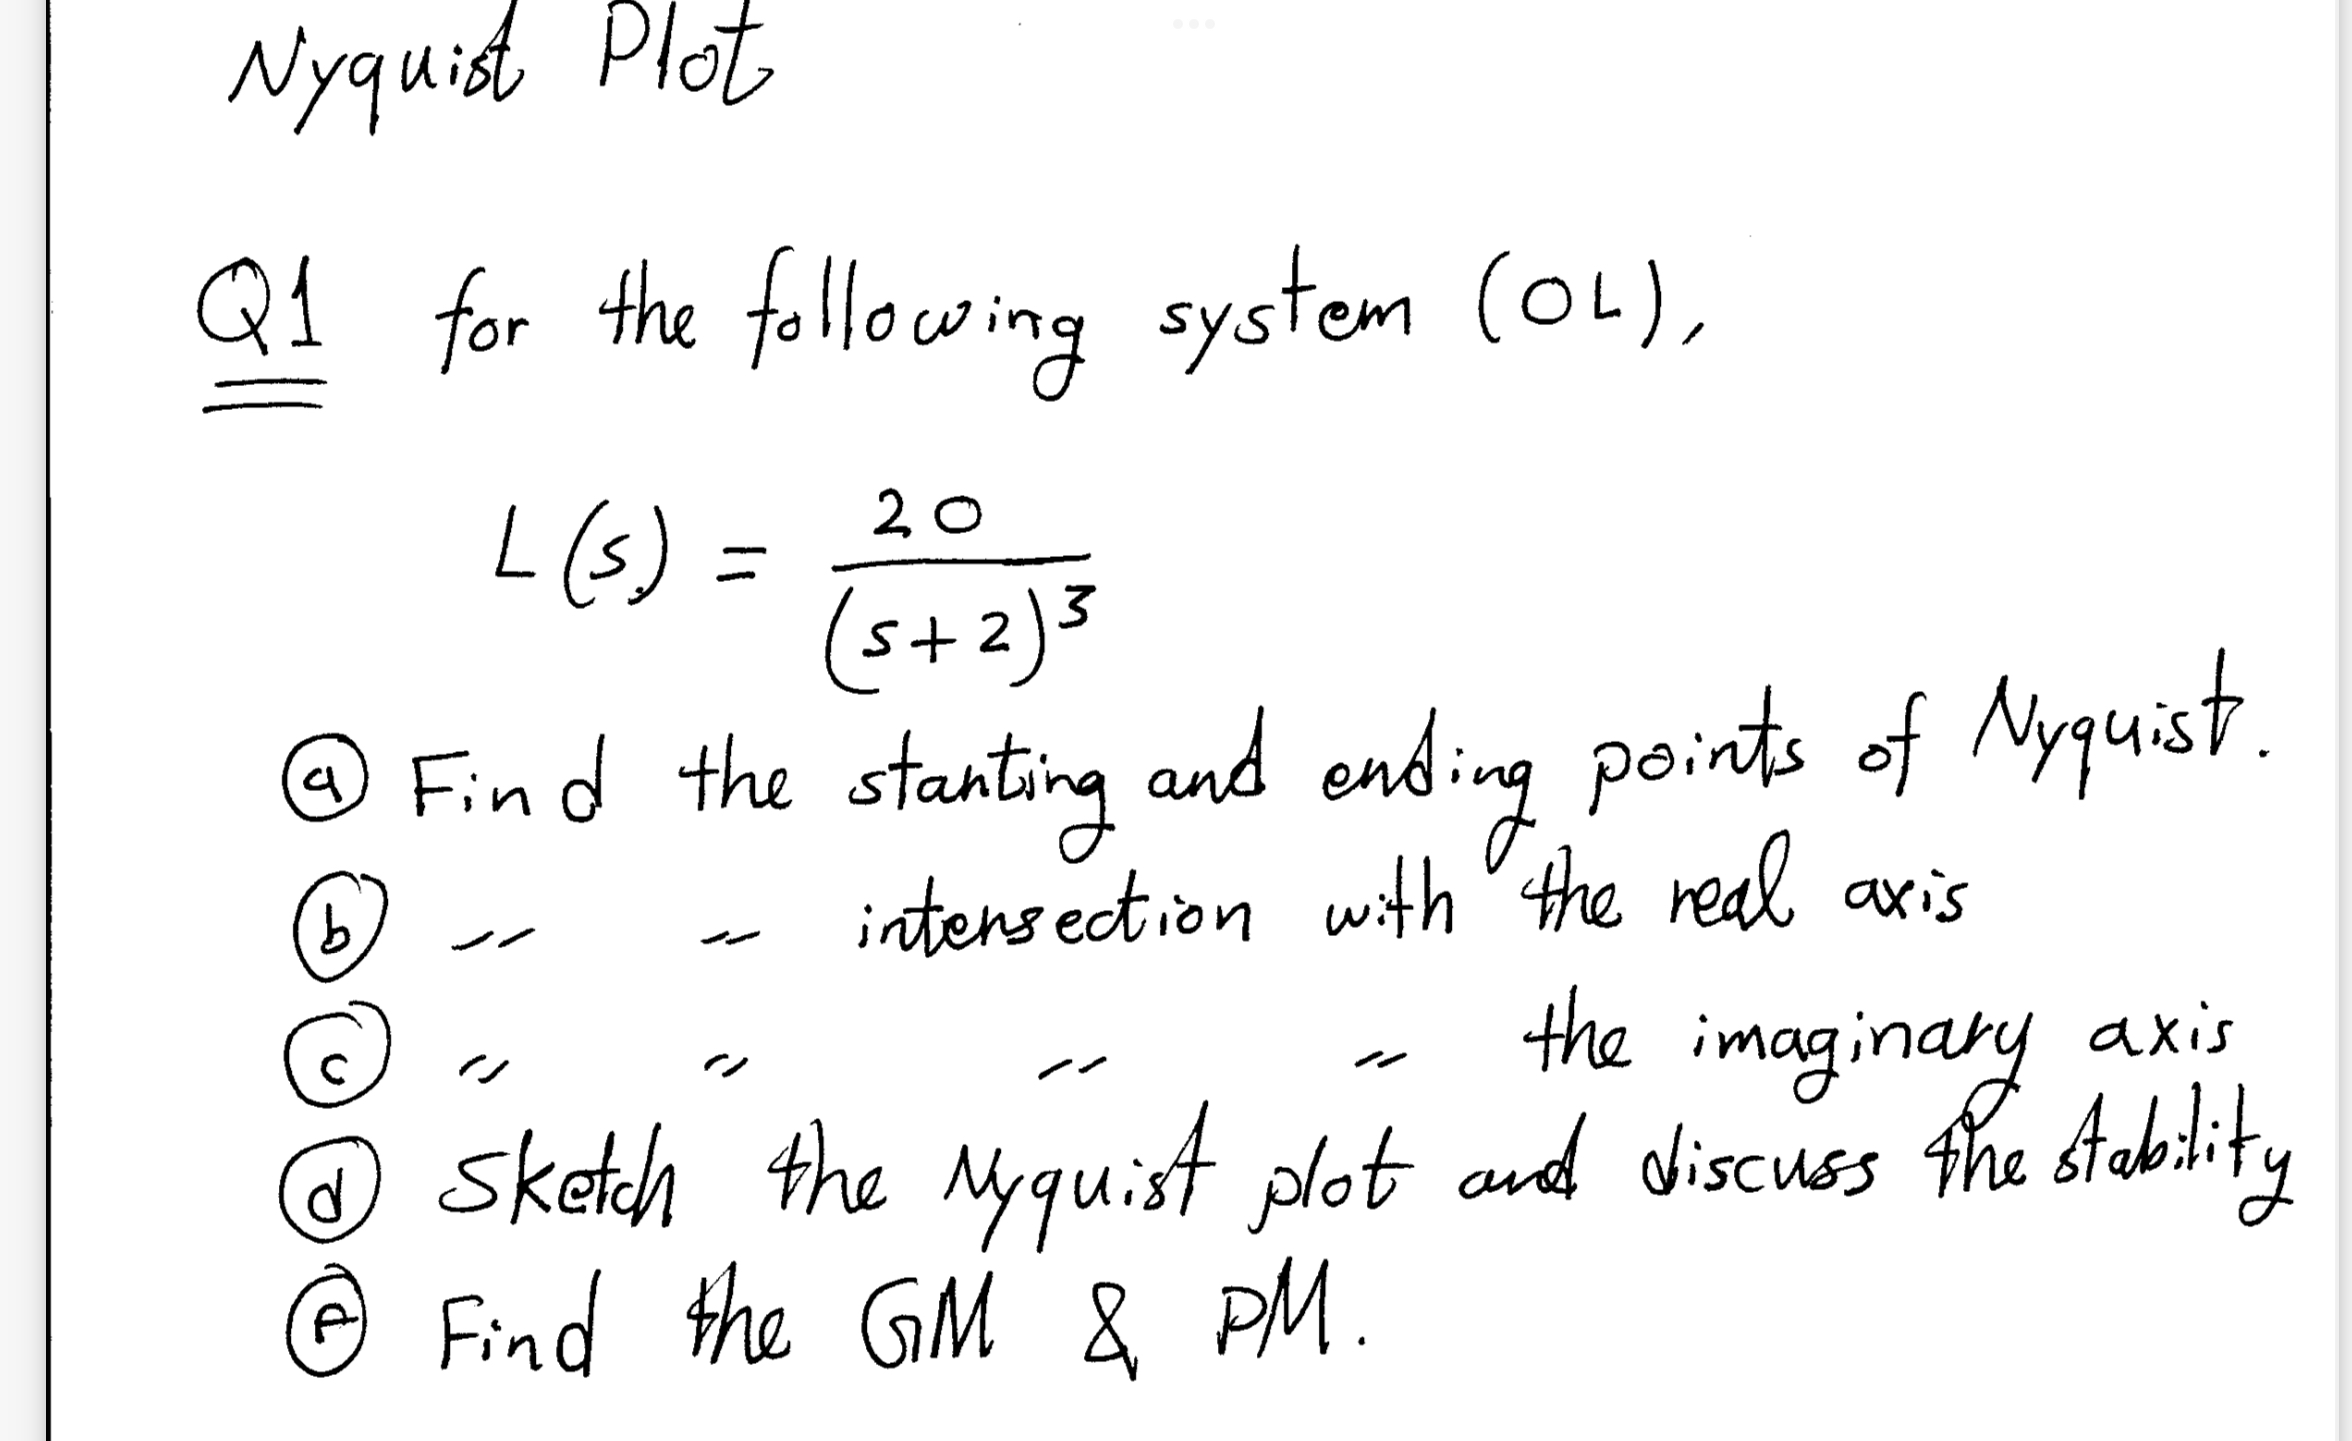 Nyquist Plot
Q1 for the following system (OL),
L(s) = 20
(s+2)³
ⓐ Find the starting and ending points of Nyquist.
ⓑ 〃 〃 intersection with the real axis
ⓒ 〃 〃 〃 〃 the imaginary axis
ⓓ Sketch the Nyquist plot and discuss the stability
ⓔ Find the GM & PM.